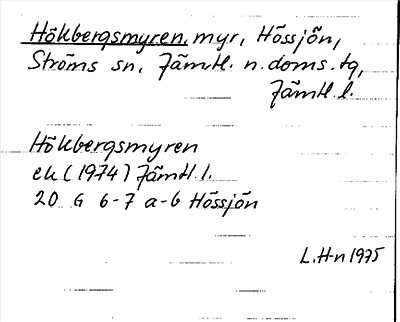 Hökbergsmyren, myr, Hössjön,
Ströms sn, Jämtl. n. doms. tg,
Jämtl. l.
Hökbergsmyren
ek (1974) Jämtl. l.
20 G 6-7 a-b Hössjön
L.H-n 1975